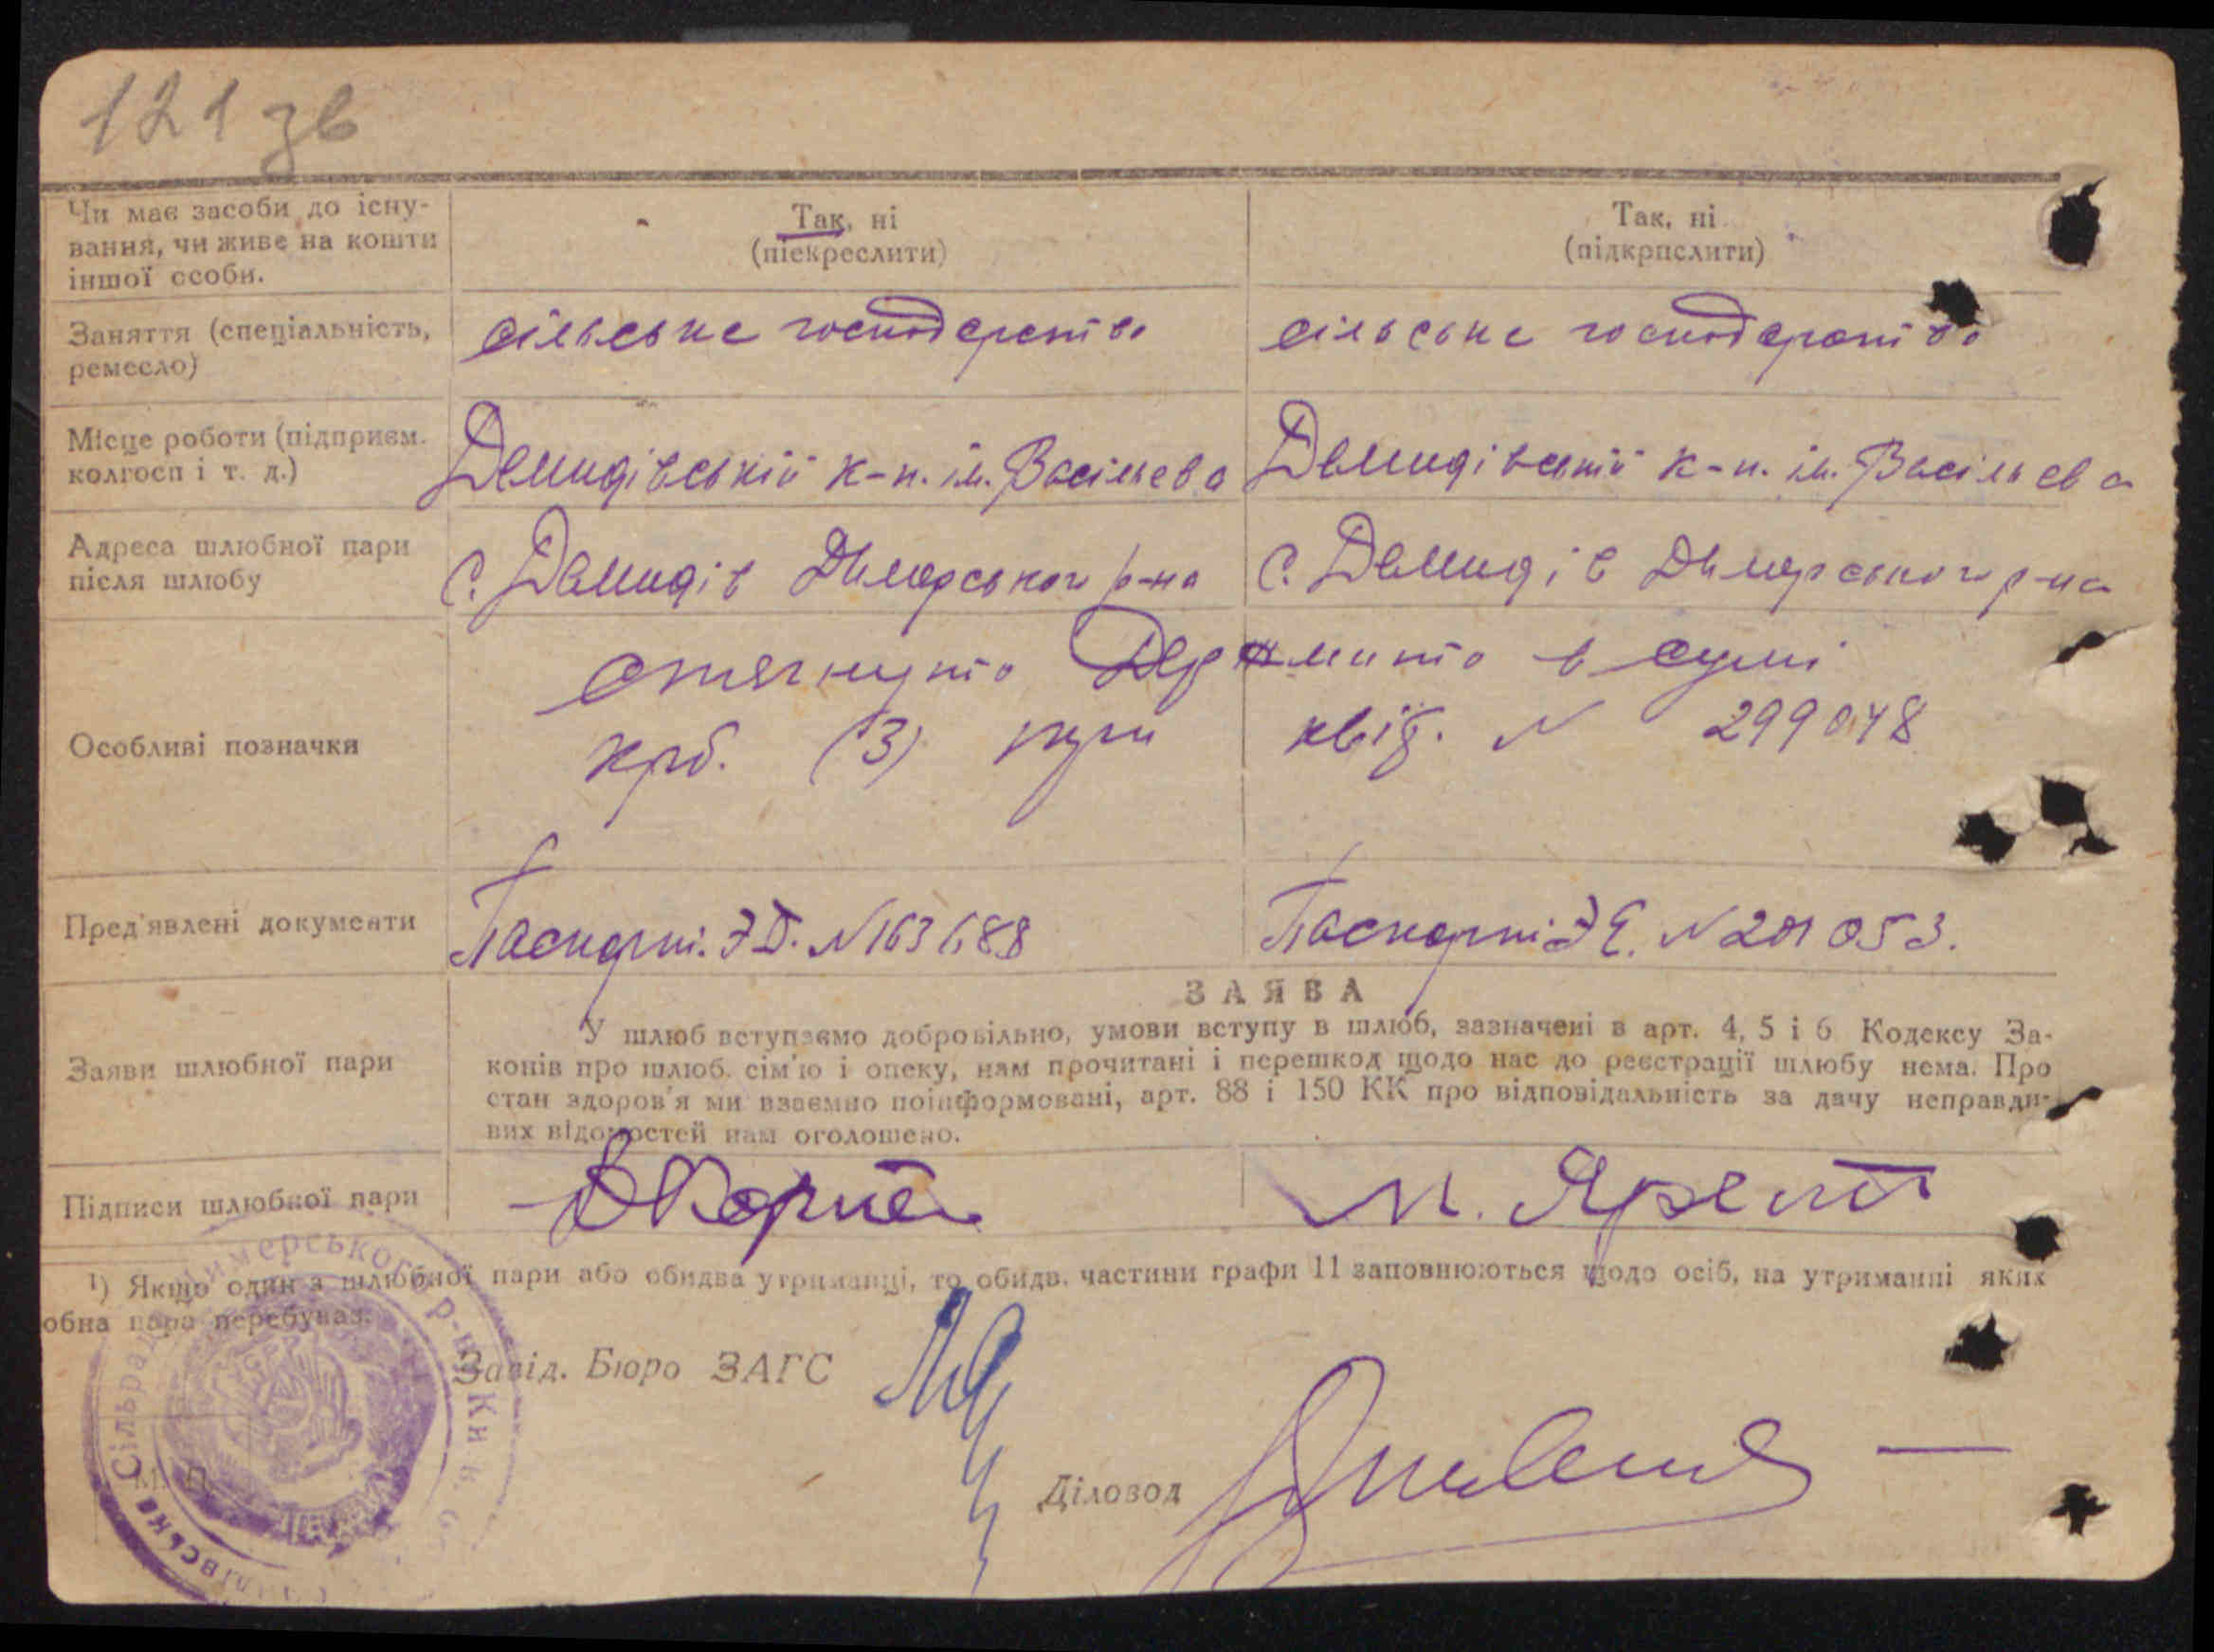 121 зв
Чи має засоби до існу-
вання, чи живе на кошти
іншої особи.
Так, ні
(піекреслити)
Так, ні
(підкрпслити)
Заняття (спеціальність,
ремесло)
сільське господарство
сільське господарство
Місце роботи (підприєм.
колгосп і т. д.)
Демидівській к-п. ім. Васільєва
Демидівській к-п. ім. Васільєва
Адреса шлюбної пари
після шлюбу
с. Демидів Димерського р-на
с. Демидів Димерського р-на
Особливі позначки
стягнуто Держмито в сумі
крб. (3) три квід. N 299048
Пред'явлені документи
Паспорт. ЭД. N 163688
Паспорт ЭЕ. N 201053.
Заяви шлюбної пари
ЗАЯВА
У шлюб вступаємо добровільно, умови вступу в шлюб, зазначені в арт. 4, 5 і 6 Кодексу За-
конів про шлюб. сім'ю і опеку, нам прочитані і перешкод щодо нас до реєстрації шлюбу нема. Про
стан здоров'я ми взаємно поінформовані, арт. 88 і 150 КК про відповідальність за дачу неправди-
вих відомостей нам оголошено.
Підписи шлюбної пари
М. Ярем
¹) Якщо один з шлюбної пари або обидва утриманці, то обидв. частини графи 11 заповнюються щодо осіб, на утриманні яких
обна пара перебуває.
Завід. Бюро ЗАГС
Діловод
М. П.
Сільрада Димерського р-н Київ. о